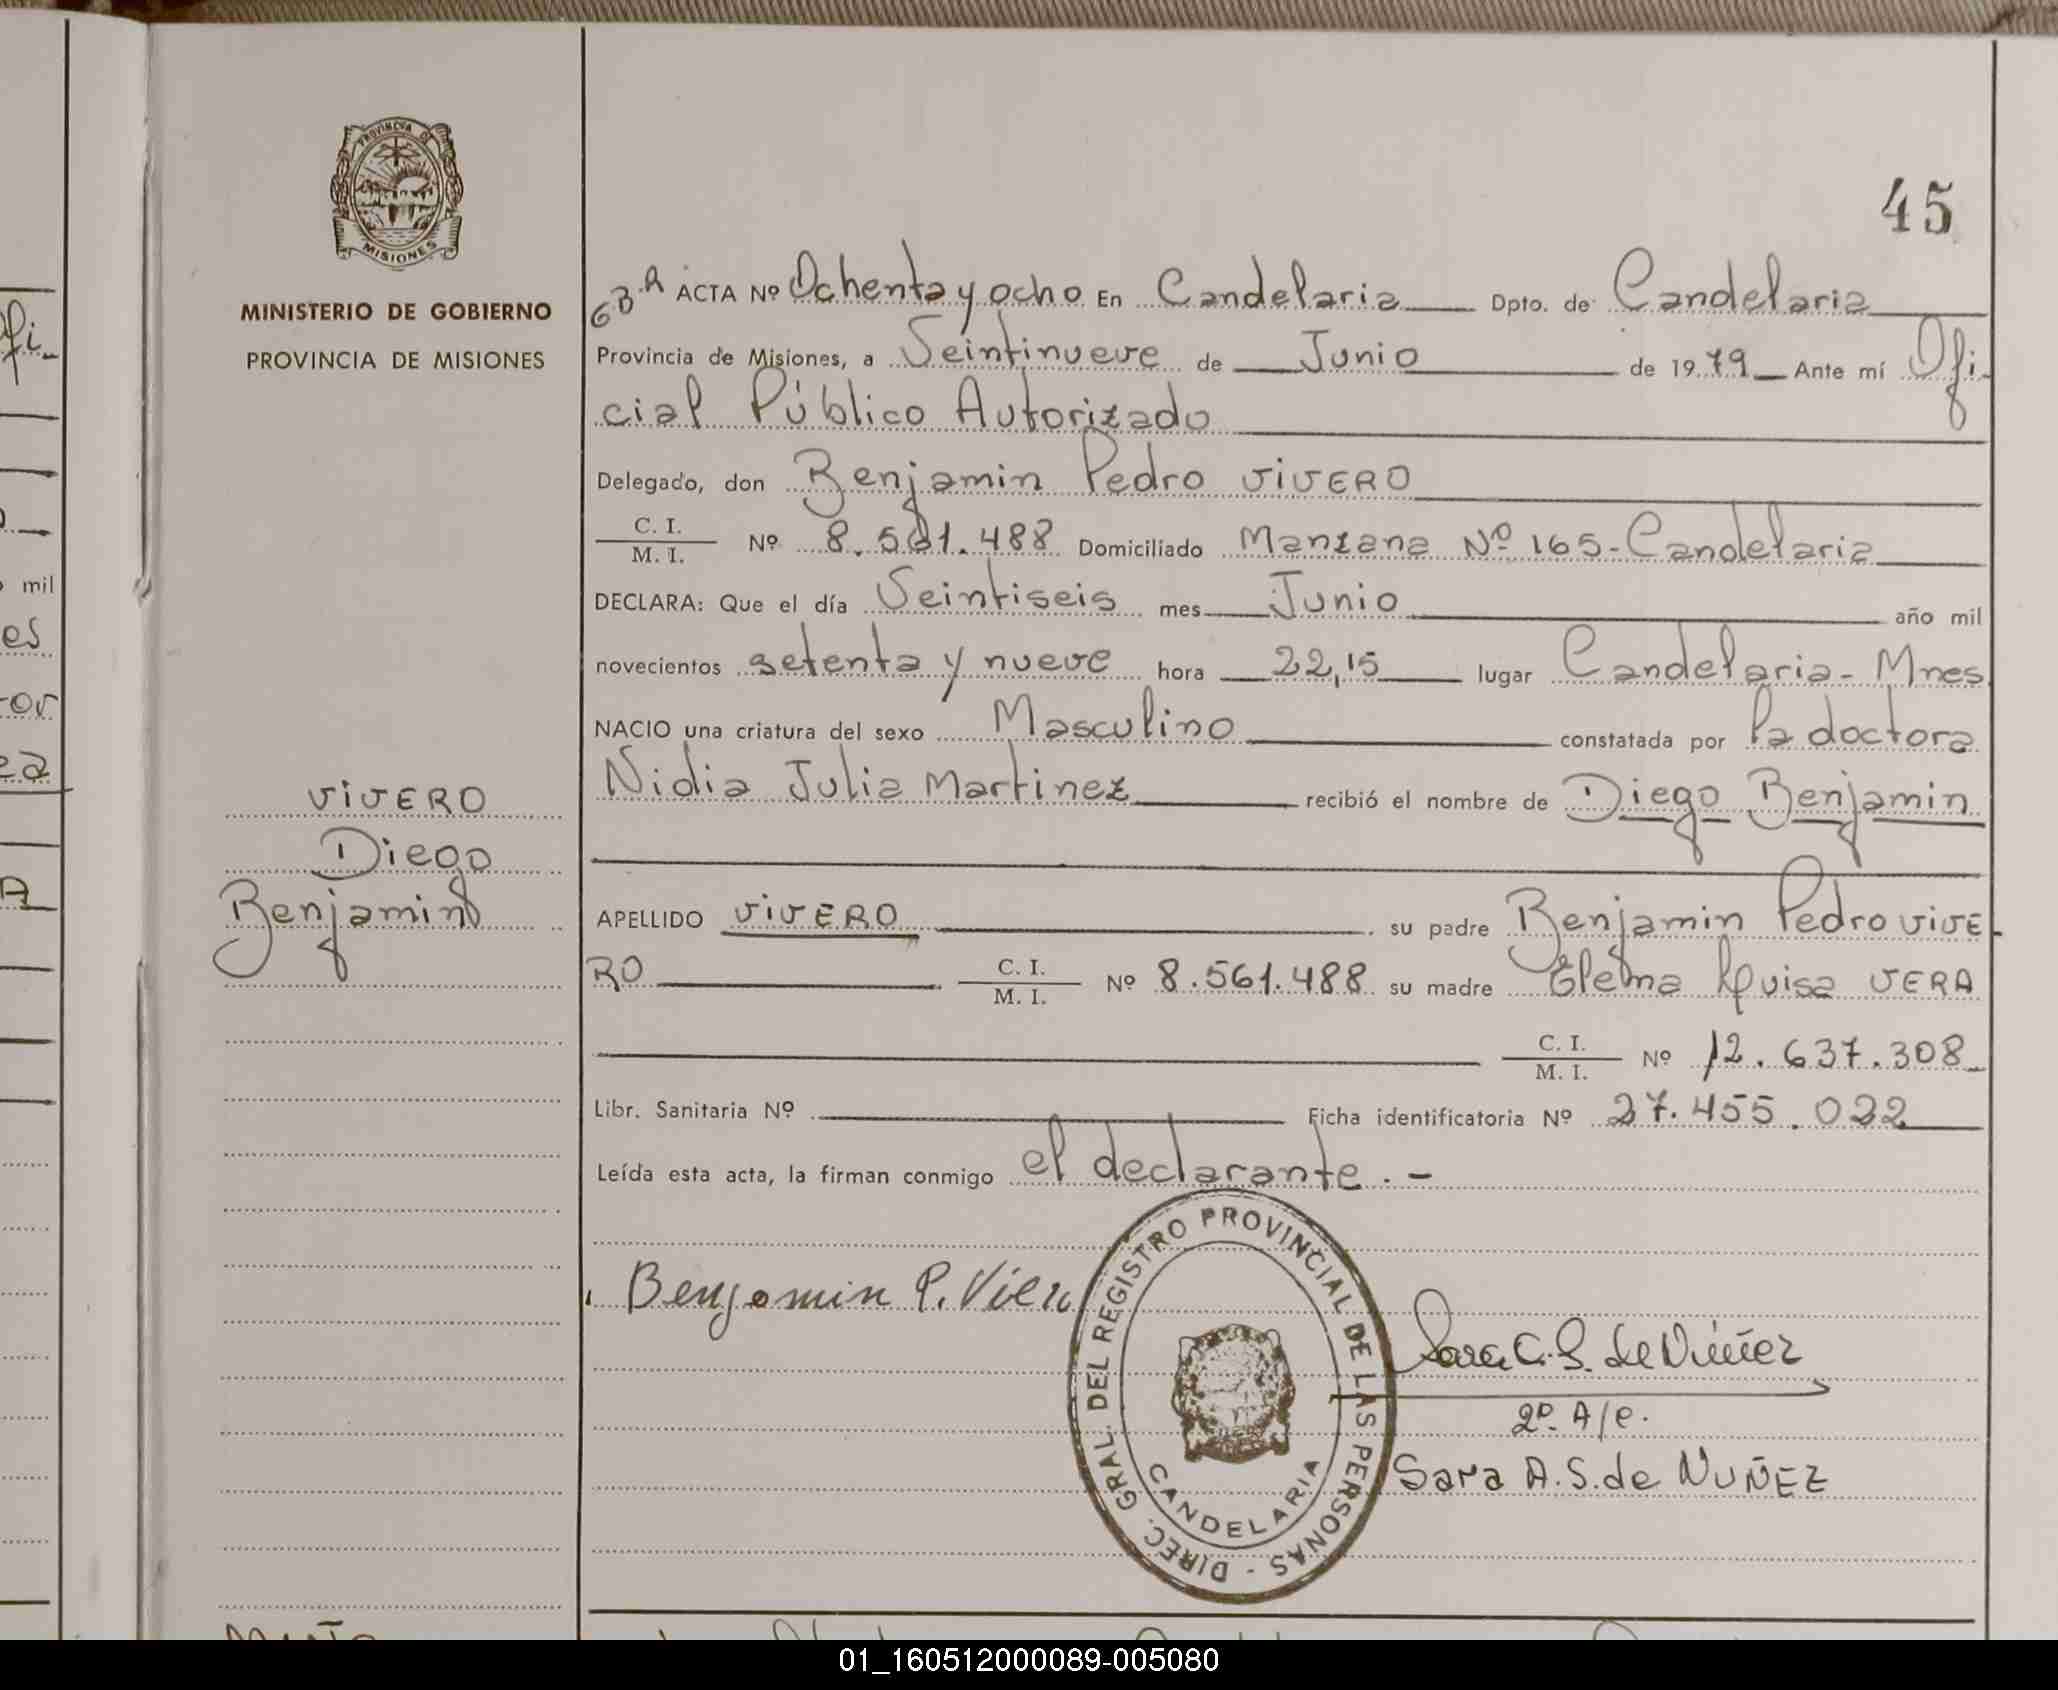 PROVINCIA DE
MISIONES
MINISTERIO DE GOBIERNO
PROVINCIA DE MISIONES
45
63-A ACTA Nº Ochenta y ocho En Candelaria Dpto. de Candelaria
Provincia de Misiones, a Veintinueve de Junio de 1979 Ante mí Ofi
cial Público Autorizado
Delegado, don Benjamin Pedro VIVERO
C. I.
M. I. Nº 8.561.488 Domiciliado Manzana Nº 165-Candelaria
DECLARA: Que el día Veintiseis mes Junio año mil
novecientos setenta y nueve hora 22,15 lugar Candelaria- Mnes
NACIO una criatura del sexo Masculino constatada por la doctora
Nidia Julia Martinez recibió el nombre de Diego Benjamin
APELLIDO VIVERO su padre Benjamin Pedro VIVE
RO C. I.
M. I. Nº 8.561.488 su madre Elema Luisa VERA
C. I.
M. I. Nº 12.637.308
Libr. Sanitaria Nº Ficha identificatoria Nº 27.455.022
Leída esta acta, la firman conmigo el declarante.-
VIVERO
Diego
Benjamin
Benjamin P. Vivero
DIREC. GRAL. DEL REGISTRO PROVINCIAL DE LAS PERSONAS -
CANDELARIA
Sara A. S. de Núñez
2º A/e.
Sara A.S. de NUÑEZ
ofi
mil
es
or
ea
A
01_160512000089-005080